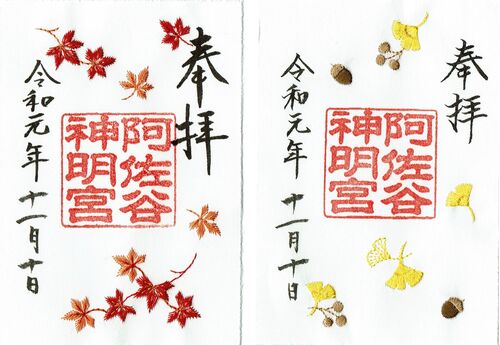 奉拝
阿佐谷
神明宮
令和元年十一月十日
奉拝
阿佐谷
神明宮
令和元年十一月十日